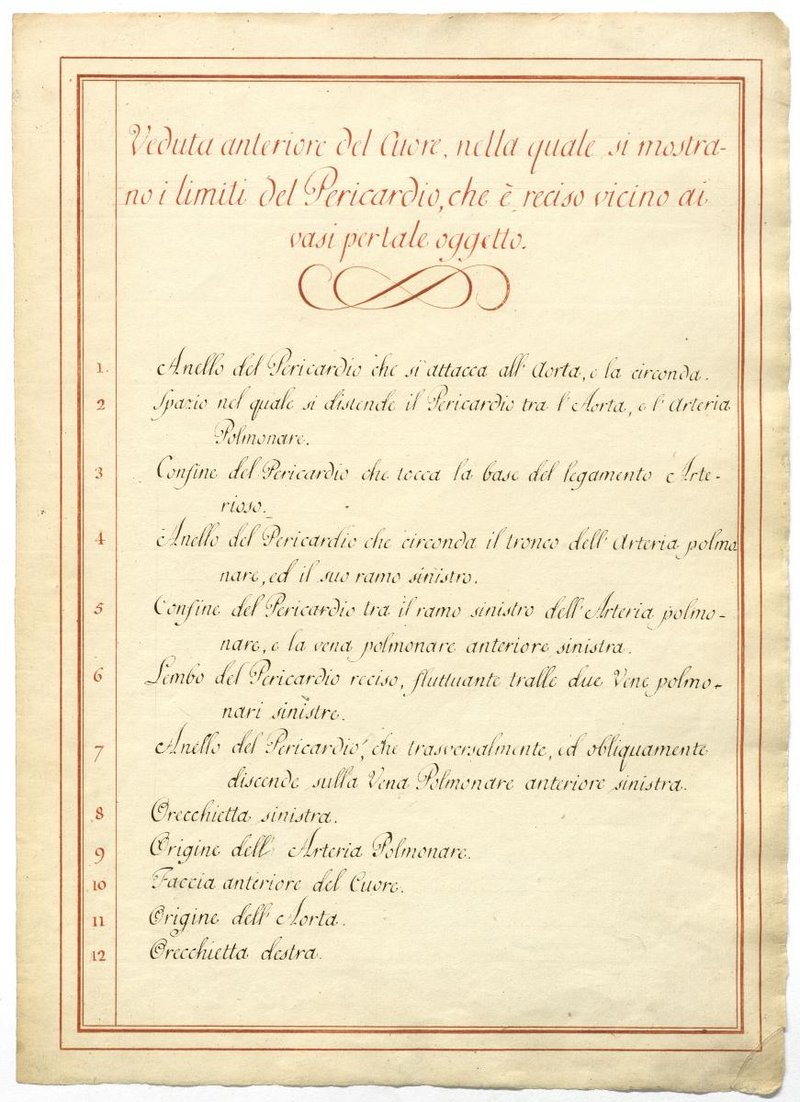 Veduta anteriore del Cuore, nella quale si mostra-
no i limiti del Pericardio, che è reciso vicino ai
vasi per tale oggetto.
1. Anello del Pericardio che si attacca all' Aorta, e la circonda.
2 Spazio nel quale si distende il Pericardio tra l' Aorta, e l' Arteria
Polmonare.
3 Confine del Pericardio che tocca la base del legamento Arte-
rioso.
4 Anello del Pericardio che circonda il tronco dell' Arteria polmo
nare, ed il suo ramo sinistro.
5 Confine del Pericardio tra il ramo sinistro dell' Arteria polmo-
nare, e la vena polmonare anteriore sinistra.
6 Lembo del Pericardio reciso, fluttuante tralle due Vene polmo-
nari sinistre.
7 Anello del Pericardio, che trasversalmente, ed obliquamente
discende sulla Vena Polmonare anteriore sinistra.
8 Orecchietta sinistra.
9 Origine dell' Arteria Polmonare.
10 Faccia anteriore del Cuore.
11 Origine dell' Aorta.
12 Orecchietta destra.